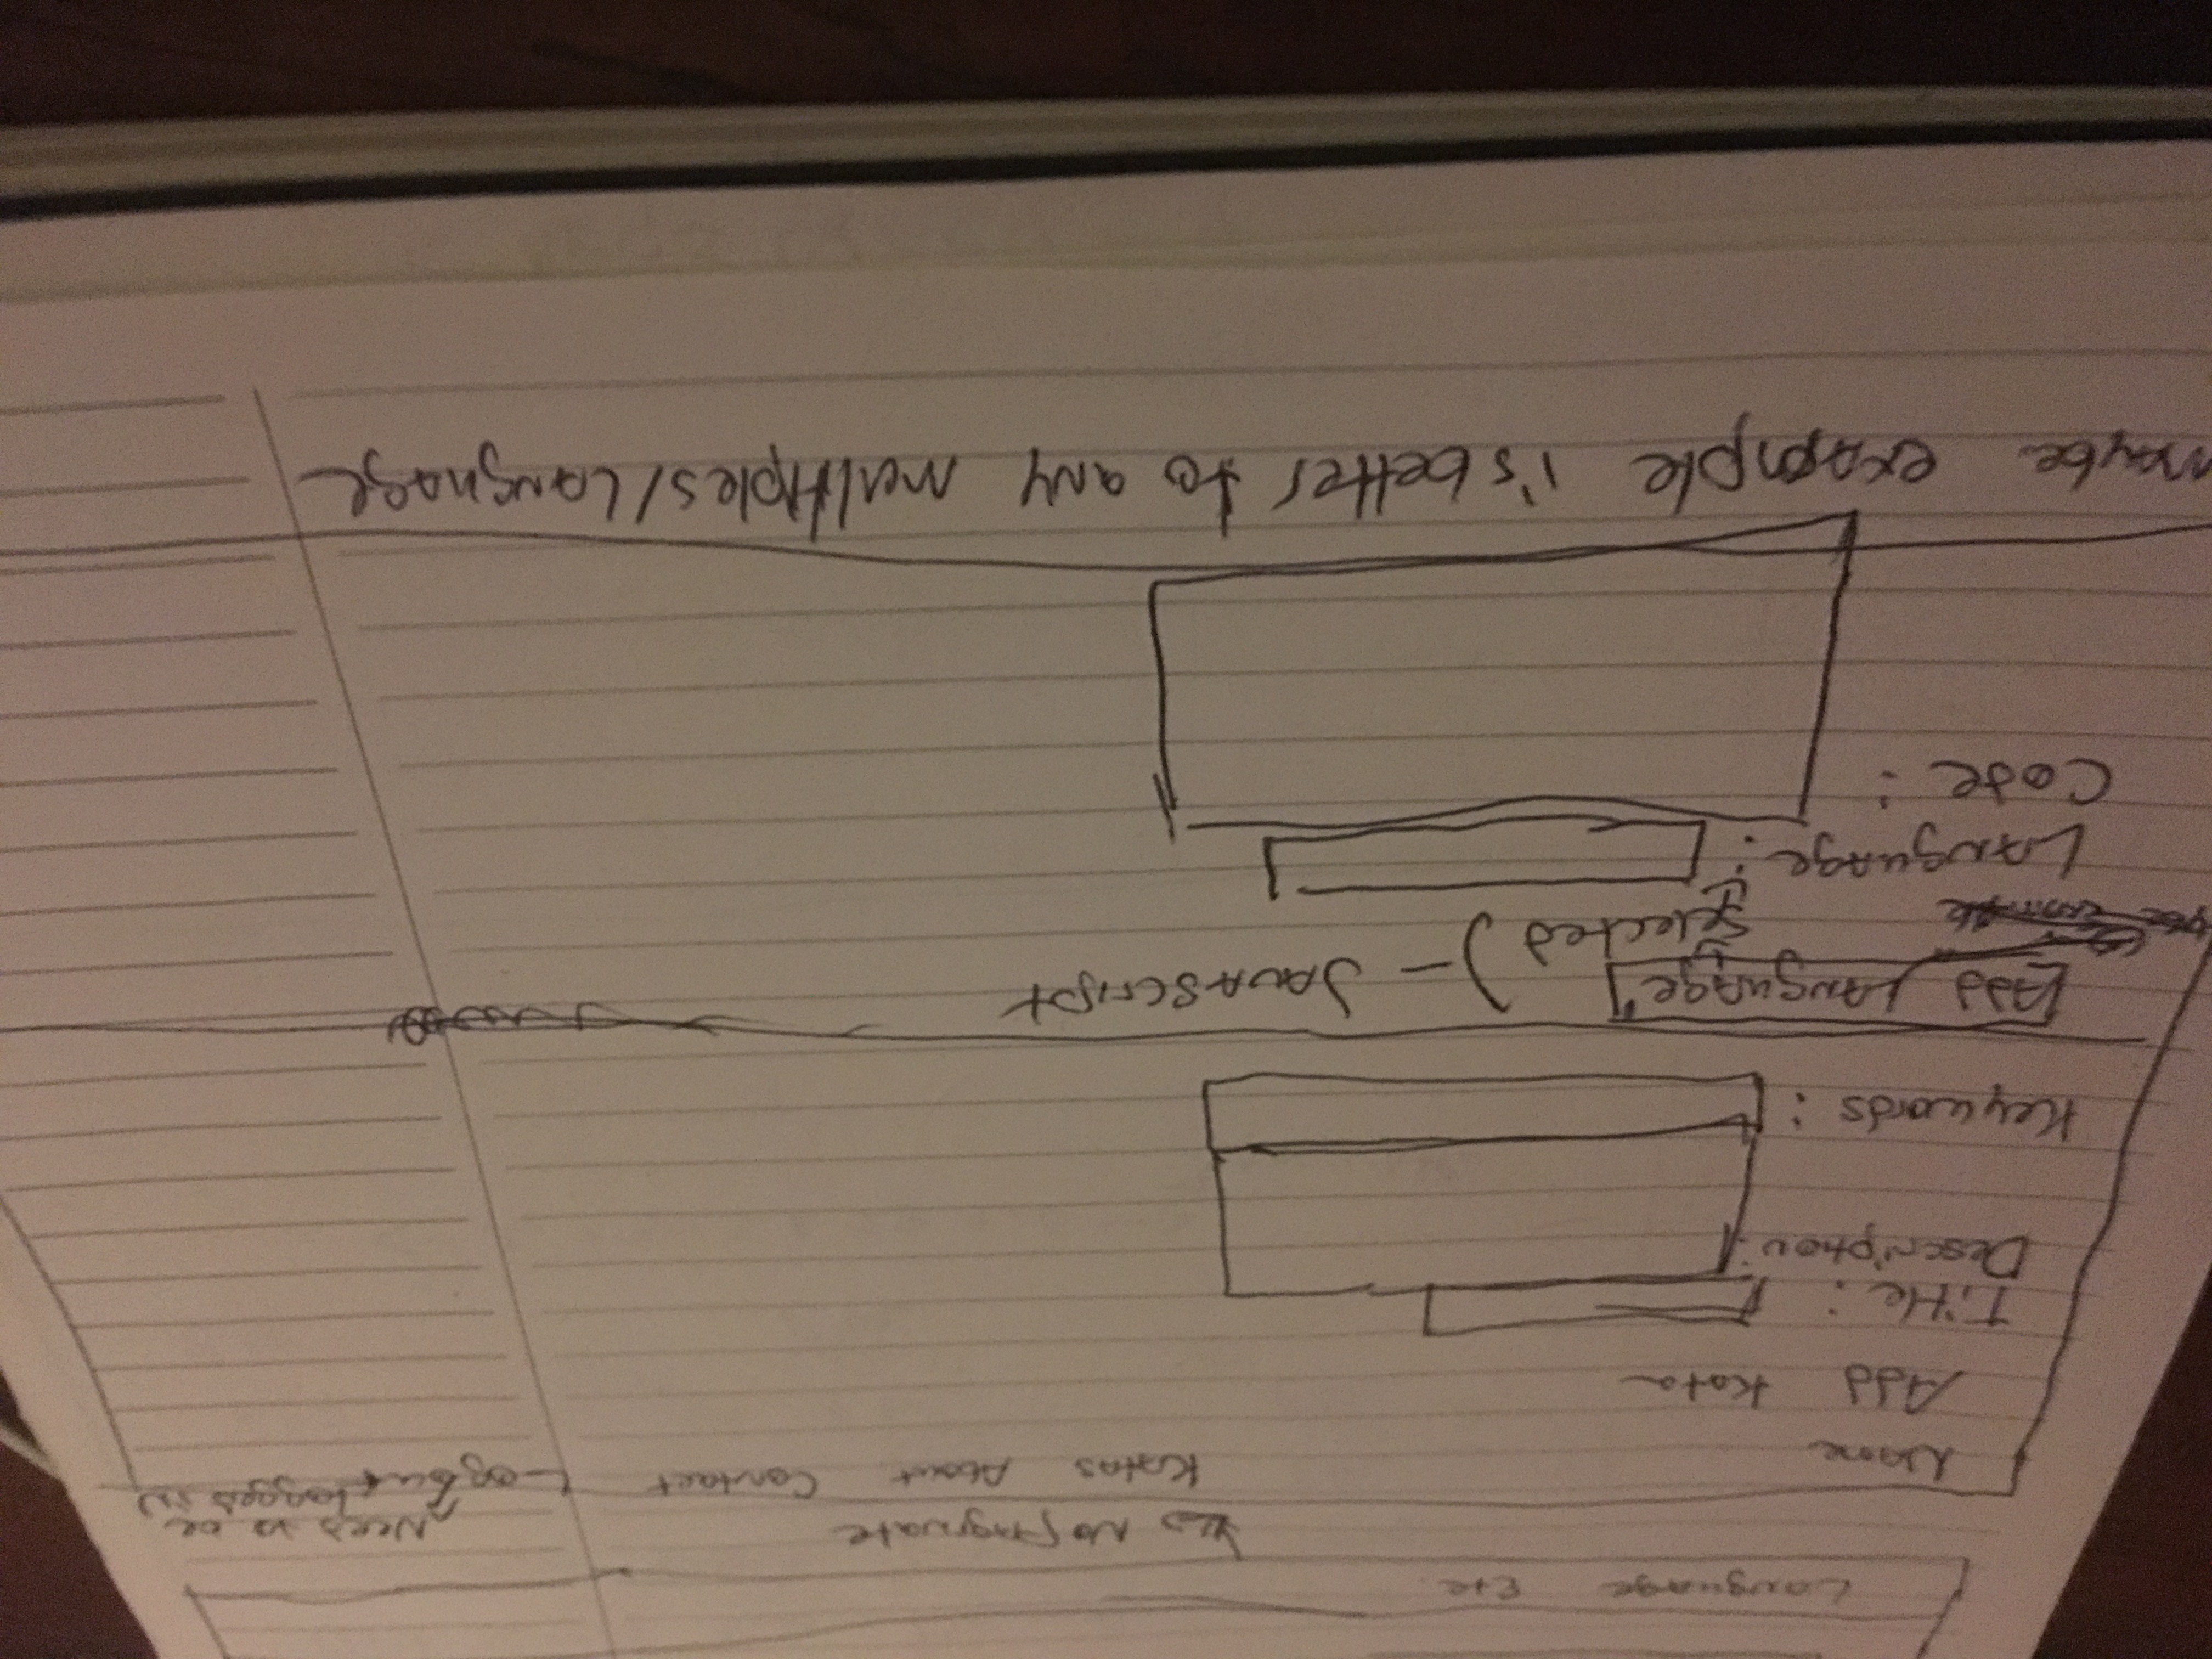 Language Etc
Need to be
logged in
Name Katas About Contact Logout
Add Kata
Title:
Description:
Keywords:
Add Language
selected - JAVAScript
Language:
Code:
maybe example is better to any multiples/Language